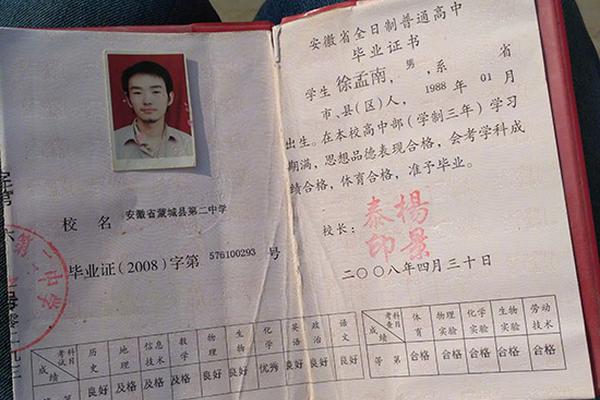 校名 安徽省蒙城县第二中学
毕业证(2008)字第 576100293 号
考试科目 历史 地理 信息技术 数学 物理 生物 化学 英语 政治 语文
成绩 良好 及格 及格 及格 良好 良好 优秀 良好 良好 良好
安徽省全日制普通高中
毕业证书
学生 徐孟南，男，系 省
市、县(区)人，1988 年 01 月
出生。在本校高中部(学制三年)学习
期满，思想品德表现合格，会考学科成
绩合格，体育合格，准予毕业。
校长：
杨景泰印
二〇〇八年四月三十日
考查科目 体育 物理实验 化学实验 生物实验 劳动技术
成绩
等第 合格 合格 合格 合格 合格
第二中学